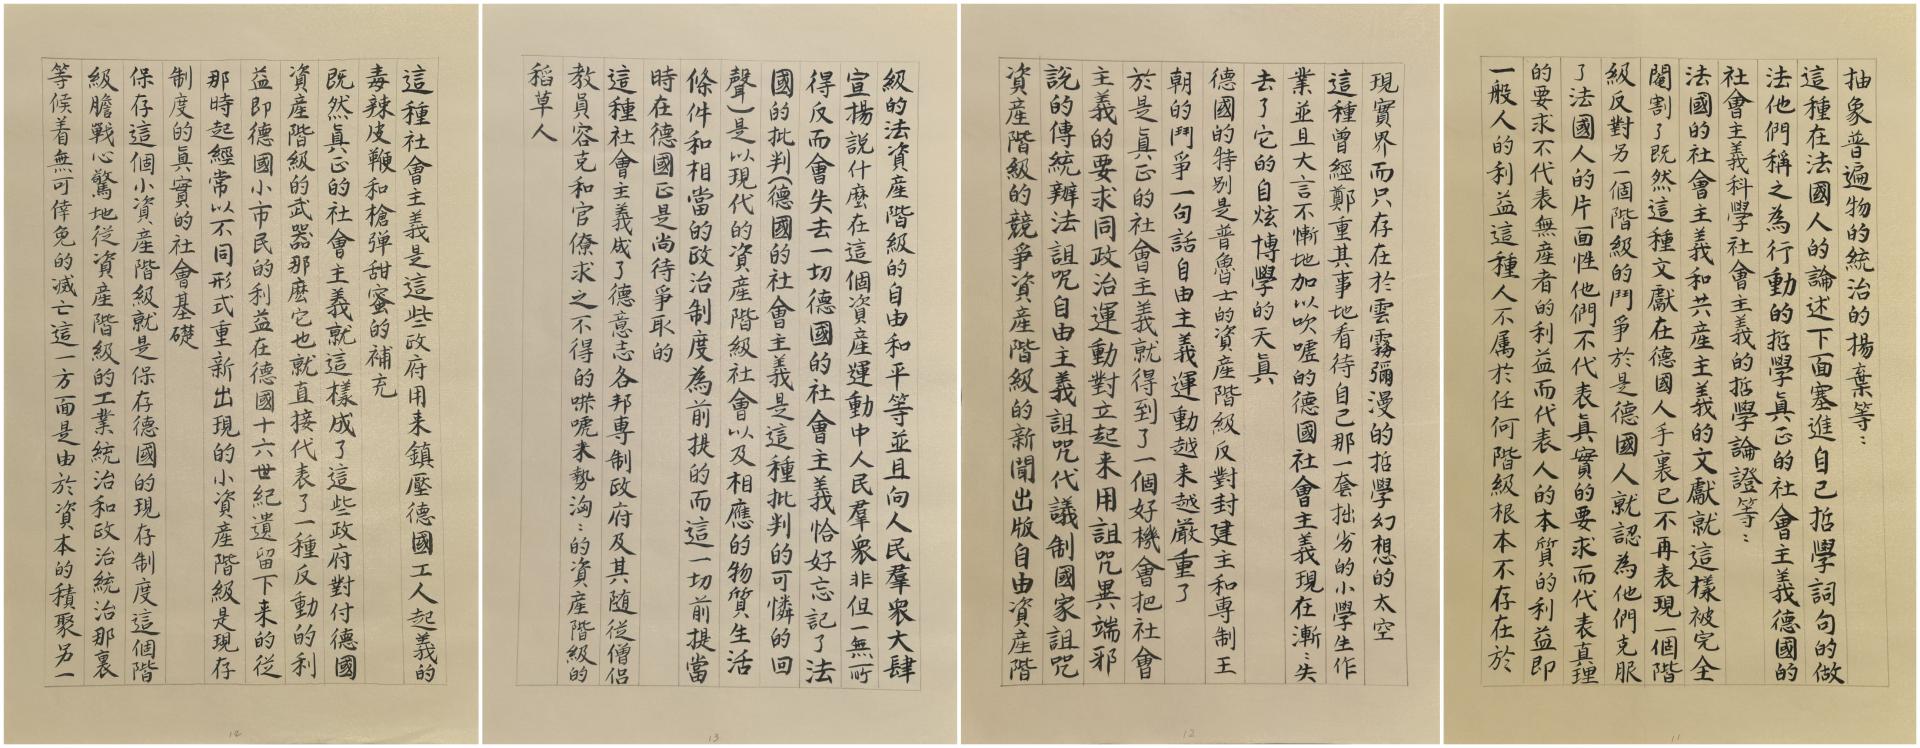 抽象普遍物的統治的揚棄等:
這種在法國人的論述下面塞進自己哲學詞句的做
法他們稱之為行動的哲學真正的社會主義德國的
社會主義科學社會主義的哲學論證等:
法國的社會主義和共産主義的文獻就這樣被完全
閹割了既然這種文獻在德國人手裏已不再表現一個階
級反對另一個階級的鬥爭於是德國人就認為他們克服
了法國人的片面性他們不代表真實的要求而代表真理
的要求不代表無産者的利益而代表人的本質的利益即
一般人的利益這種人不属於任何階級根本不存在於
11
現實界而只存在於雲霧彌漫的哲學幻想的太空
這種曾經鄭重其事地看待自己那一套拙劣的小學生作
業並且大言不慚地加以吹嘘的德國社會主義現在漸:失
去了它的自炫博學的天真
德國的特别是普魯士的資産階級反對封建主和専制王
朝的鬥爭一句話自由主義運動越来越厳重了
於是真正的社會主義就得到了一個好機會把社會
主義的要求同政治運動對立起来用詛咒異端邪
説的傳統辦法詛咒自由主義詛咒代議制國家詛咒
資産階級的競爭資産階級的新聞出版自由資産階
12
級的法資産階級的自由和平等並且向人民羣衆大肆
宣揚説什麽在這個資産運動中人民羣衆非但一無所
得反而會失去一切德國的社會主義恰好忘記了法
國的批判(德國的社會主義是這種批判的可憐的回
聲)是以現代的資産階級社會以及相應的物質生活
條件和相當的政治制度為前提的而這一切前提當
時在德國正是尚待爭取的
這種社會主義成了德意志各邦専制政府及其随從僧侣
教員容克和官僚求之不得的嚇唬来勢洶:的資産階級的
稻草人
13
這種社會主義是這些政府用来鎮壓德國工人起義的
毒辣皮鞭和槍弹甜蜜的補充
既然真正的社會主義就這樣成了這些政府對付德國
資産階級的武器那麽它也就直接代表了一種反動的利
益即德國小市民的利益在德國十六世紀遺留下来的從
那時起經常以不同形式重新出現的小資産階級是現存
制度的真實的社會基礎
保存這個小資産階級就是保存德國的現存制度這個階
級膽戰心驚地從資産階級的工業統治和政治統治那裏
等候着無可倖免的滅亡這一方面是由於資本的積聚另一
14